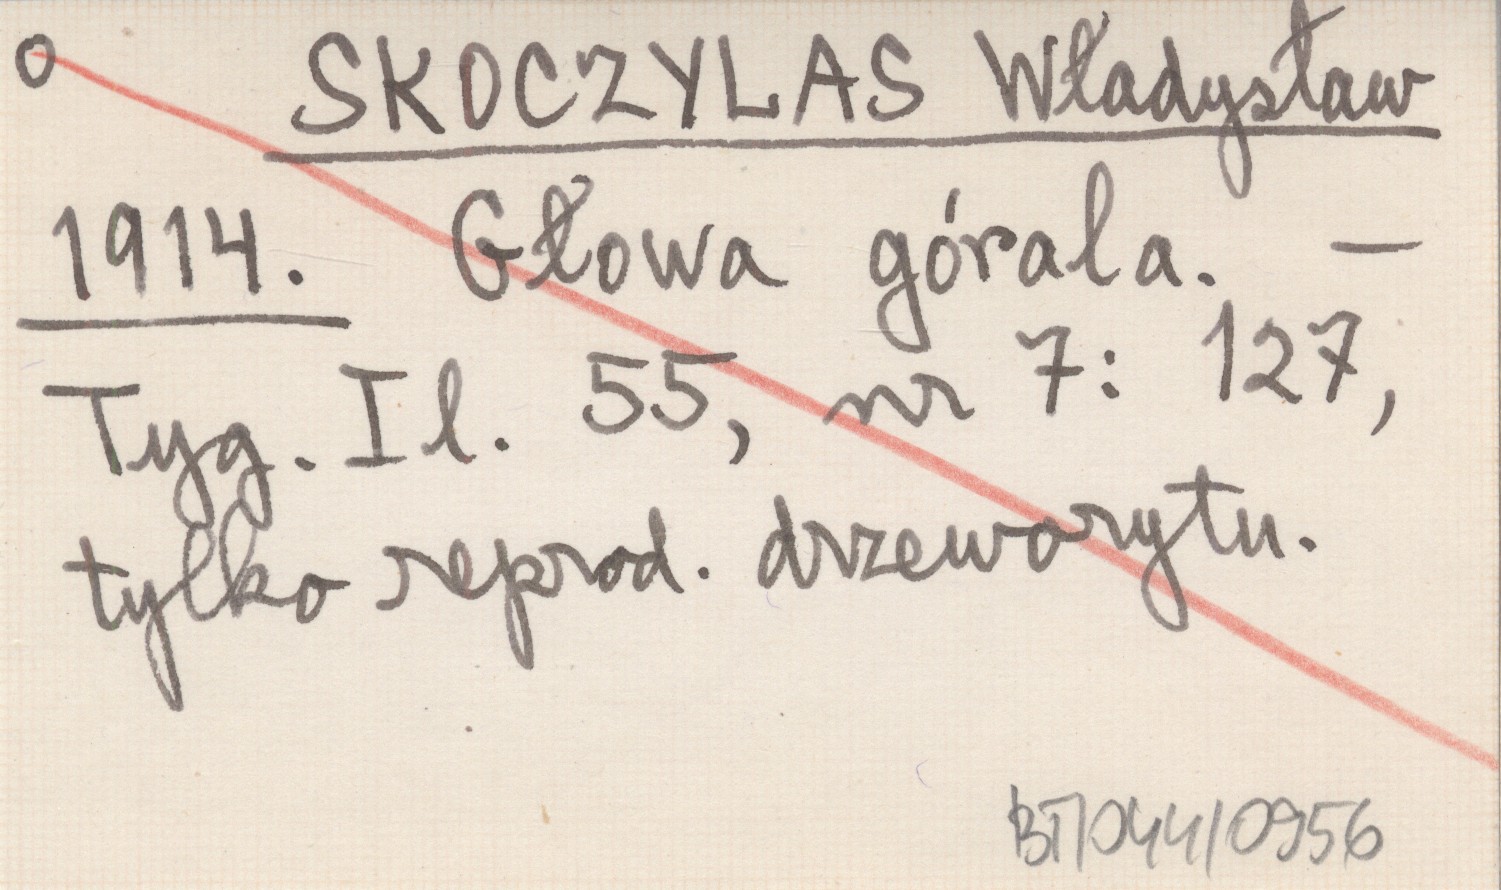 o SKOCZYLAS Władysław
1914. Głowa górala. –
Tyg. Il. 55, nr 7: 127,
tylko reprod. drzeworytu.
BT/044/0956